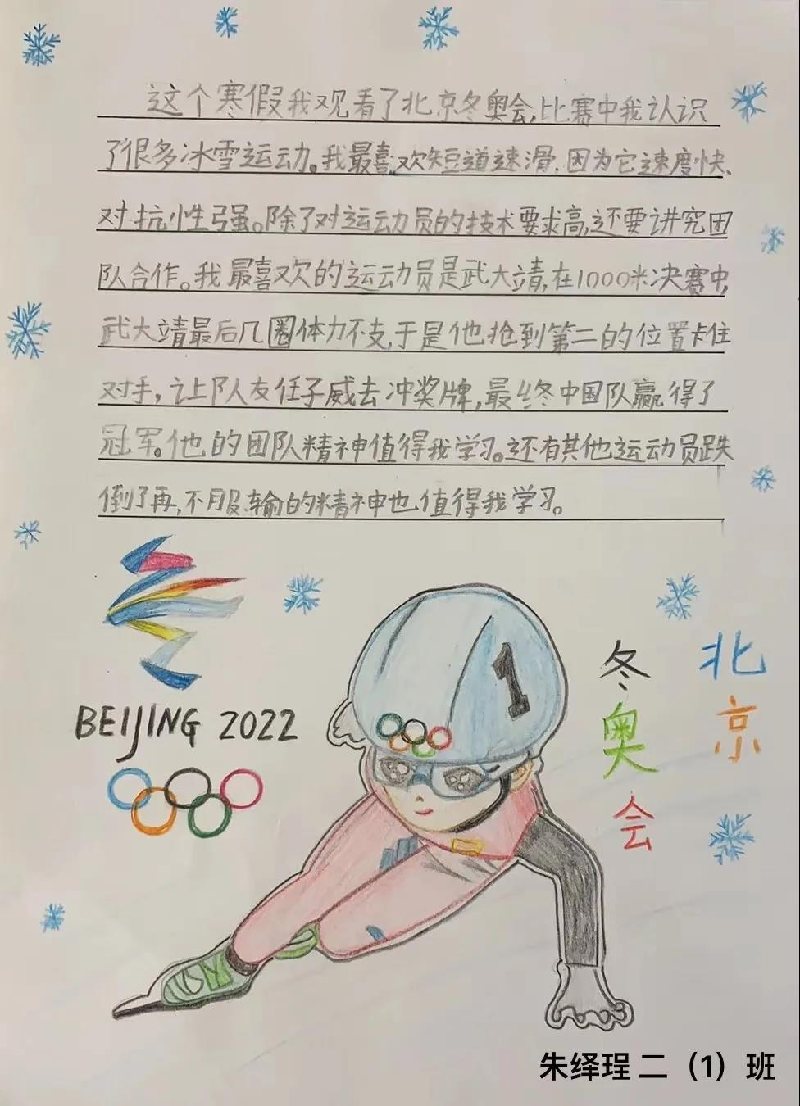 这个寒假我观看了北京冬奥会,比赛中我认识
了很多冰雪运动。我最喜欢短道速滑.因为它速度快、
对抗性强。除了对运动员的技术要求高,还要讲究团
队合作。我最喜欢的运动员是武大靖,在1000米决赛中,
武大靖最后几圈体力不支,于是他抢到第二的位置卡住
对手,让队友任子威去冲奖牌,最终中国队赢得了
冠军。他的团队精神值得我学习。还有其他运动员跌
倒了再,不服输的精神也值得我学习。
BEIJING 2022
1
北京
冬奥会
朱绎珵 二（1）班